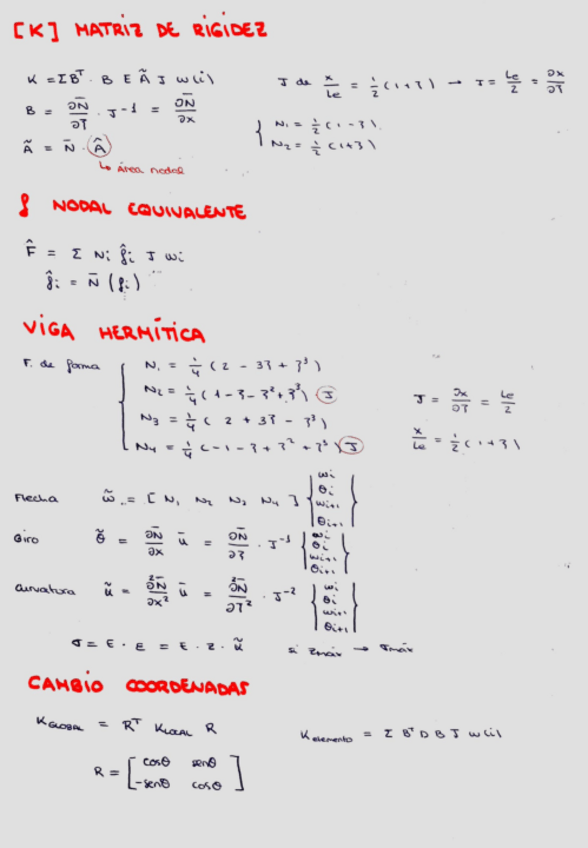 [K] MATRIZ DE RIGIDEZ
K = Σ Bᵀ · B E Ã J w(i)
J de x/Le = 1/2 (1+ℑ) → J = Le/2 = ∂x/∂ℑ
B = ∂N̄/∂ℑ · J⁻¹ = ∂N̄/∂x
N₁ = 1/2 (1-ℑ)
Ã = N̄ · Â
N₂ = 1/2 (1+ℑ)
↳ Área nodal
f NODAL EQUIVALENTE
F̂ = Σ Ni f̂i J wi
f̂i = N̄ (fi)
VIGA HERMÍTICA
F. de forma
N₁ = 1/4 (2 - 3ℑ + ℑ³)
N₂ = 1/4 (1 - ℑ - ℑ² + ℑ³) J
J = ∂x/∂ℑ = Le/2
N₃ = 1/4 (2 + 3ℑ - ℑ³)
x/Le = 1/2 (1+ℑ)
N₄ = 1/4 (-1 - ℑ + ℑ² + ℑ³) J
Flecha w̃ = [N₁ N₂ N₃ N₄] {wi θi wi+1 θi+1}
Giro θ̃ = ∂N̄/∂x ū = ∂N̄/∂ℑ · J⁻¹ {wi θi wi+1 θi+1}
Curvatura ũ = ∂²N̄/∂x² ū = ∂²N̄/∂ℑ² · J⁻² {wi θi wi+1 θi+1}
σ = E · ε = E · z · ũ si zmáx → σmáx
CAMBIO COORDENADAS
K GLOBAL = Rᵀ K LOCAL R
K elemento = Σ Bᵀ D B J w(i)
R = [cosθ senθ
-senθ cosθ]